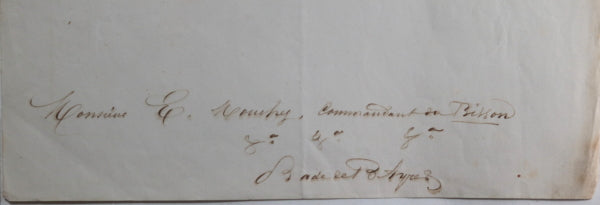 Monsieur E. Mouchez, Commandant du Bisson
&a &a &a
Rade de B. Ayres